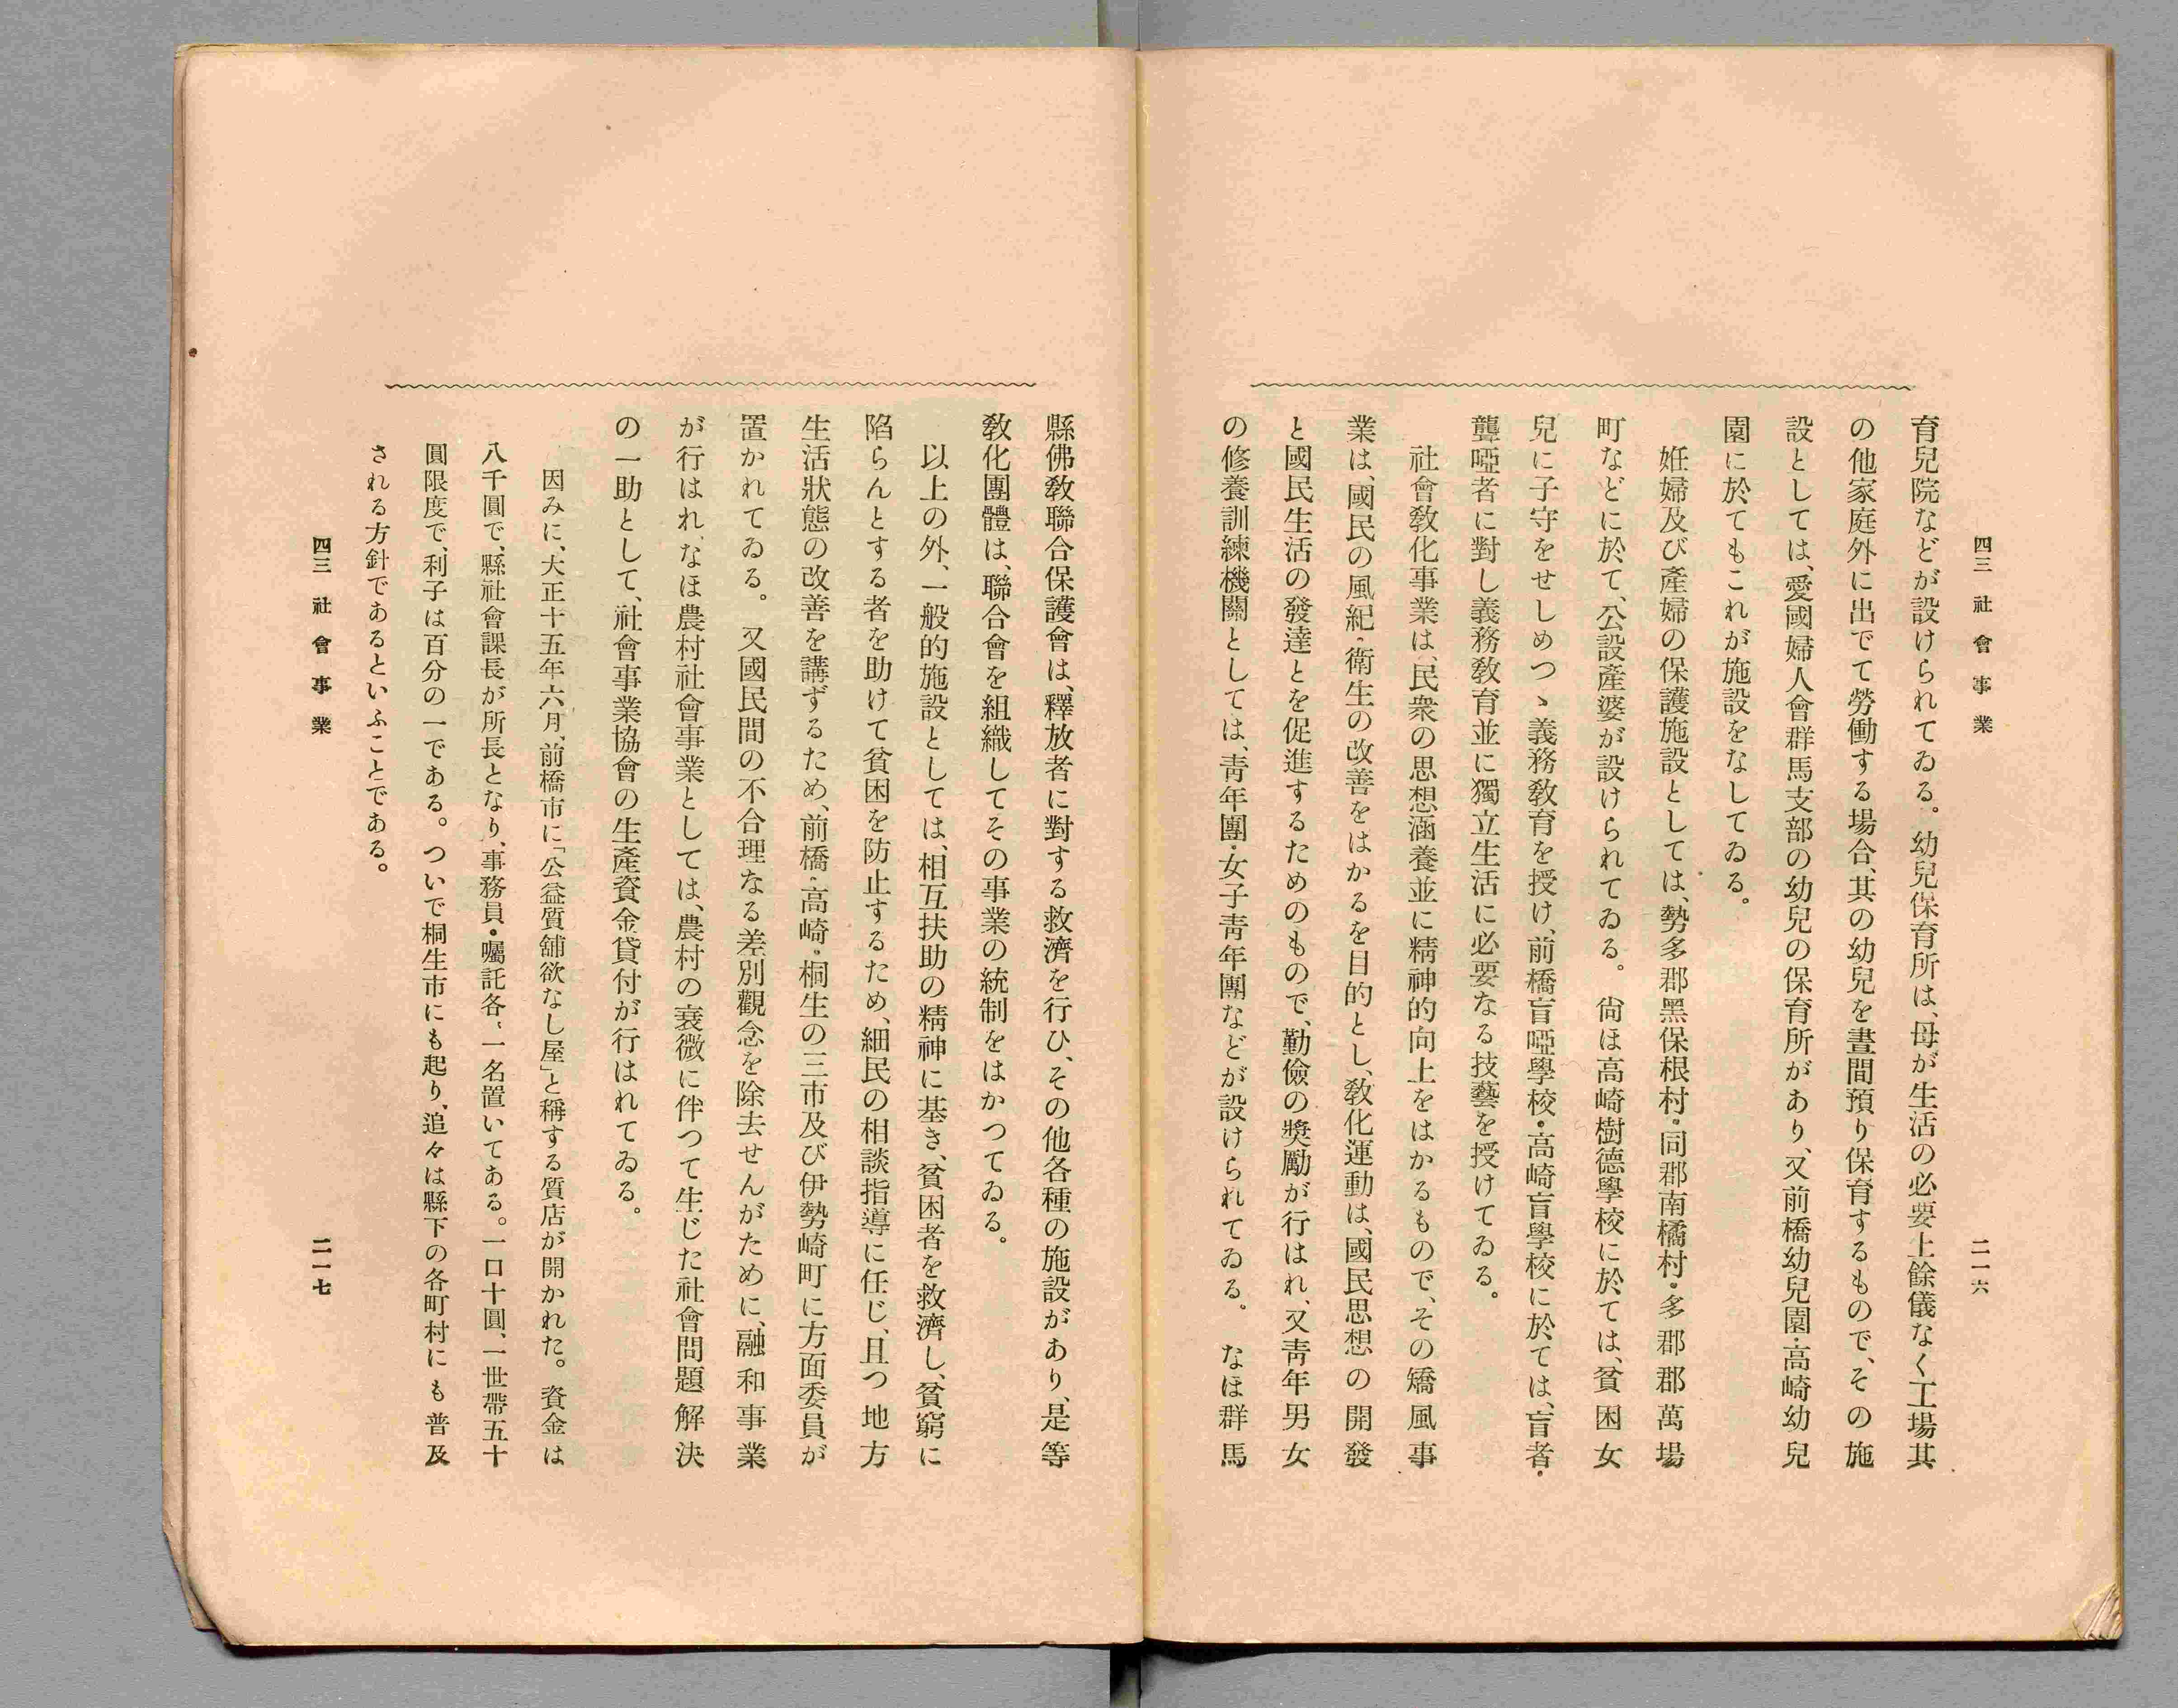 四三 社會事業
二一六
育兒院などが設けられてゐる。幼兒保育所は、母が生活の必要上餘儀なく工場其
の他家庭外に出でて勞働する場合、其の幼兒を晝間預り保育するもので、その施
設としては、愛國婦人會群馬支部の幼兒の保育所があり、又前橋幼兒園・高崎幼兒
園に於てもこれが施設をなしてゐる。
姙婦及び產婦の保護施設としては、勢多郡黑保根村・同郡南橘村・多郡郡萬場
町などに於て、公設產婆が設けられてゐる。尙ほ高崎樹德學校に於ては、貧困女
兒に子守をせしめつゝ義務敎育を授け、前橋盲啞學校・高崎盲學校に於ては、盲者・
聾啞者に對し義務敎育並に獨立生活に必要なる技藝を授けてゐる。
社會敎化事業は、民衆の思想涵養並に精神的向上をはかるもので、その矯風事
業は、國民の風紀・衞生の改善をはかるを目的とし、敎化運動は、國民思想の開發
と國民生活の發達とを促進するためのもので、勤儉の奬勵が行はれ、又靑年男女
の修養訓練機關としては、靑年團・女子靑年團などが設けられてゐる。なほ群馬
縣佛敎聯合保護會は、釋放者に對する救濟を行ひ、その他各種の施設があり、是等
敎化團體は、聯合會を組織してその事業の統制をはかつてゐる。
以上の外、一般的施設としては、相互扶助の精神に基き、貧困者を救濟し、貧窮に
陷らんとする者を助けて貧困を防止するため、細民の相談指導に任じ、且つ地方
生活狀態の改善を講ずるため、前橋・高崎・桐生の三市及び伊勢崎町に方面委員が
置かれてゐる。又國民間の不合理なる差別觀念を除去せんがために、融和事業
が行はれ、なほ農村社會事業としては、農村の衰微に伴つて生じた社會問題解決
の一助として、社會事業協會の生產資金貸付が行はれてゐる。
因みに、大正十五年六月、前橋市に「公益質舖欲なし屋」と稱する質店が開かれた。資金は
八千圓で、縣社會課長が所長となり、事務員・囑託各〻一名置いてある。一口十圓、一世帶五十
圓限度で、利子は百分の一である。ついで桐生市にも起り、追々は縣下の各町村にも普及
される方針であるといふことである。
四三 社會事業
二一七